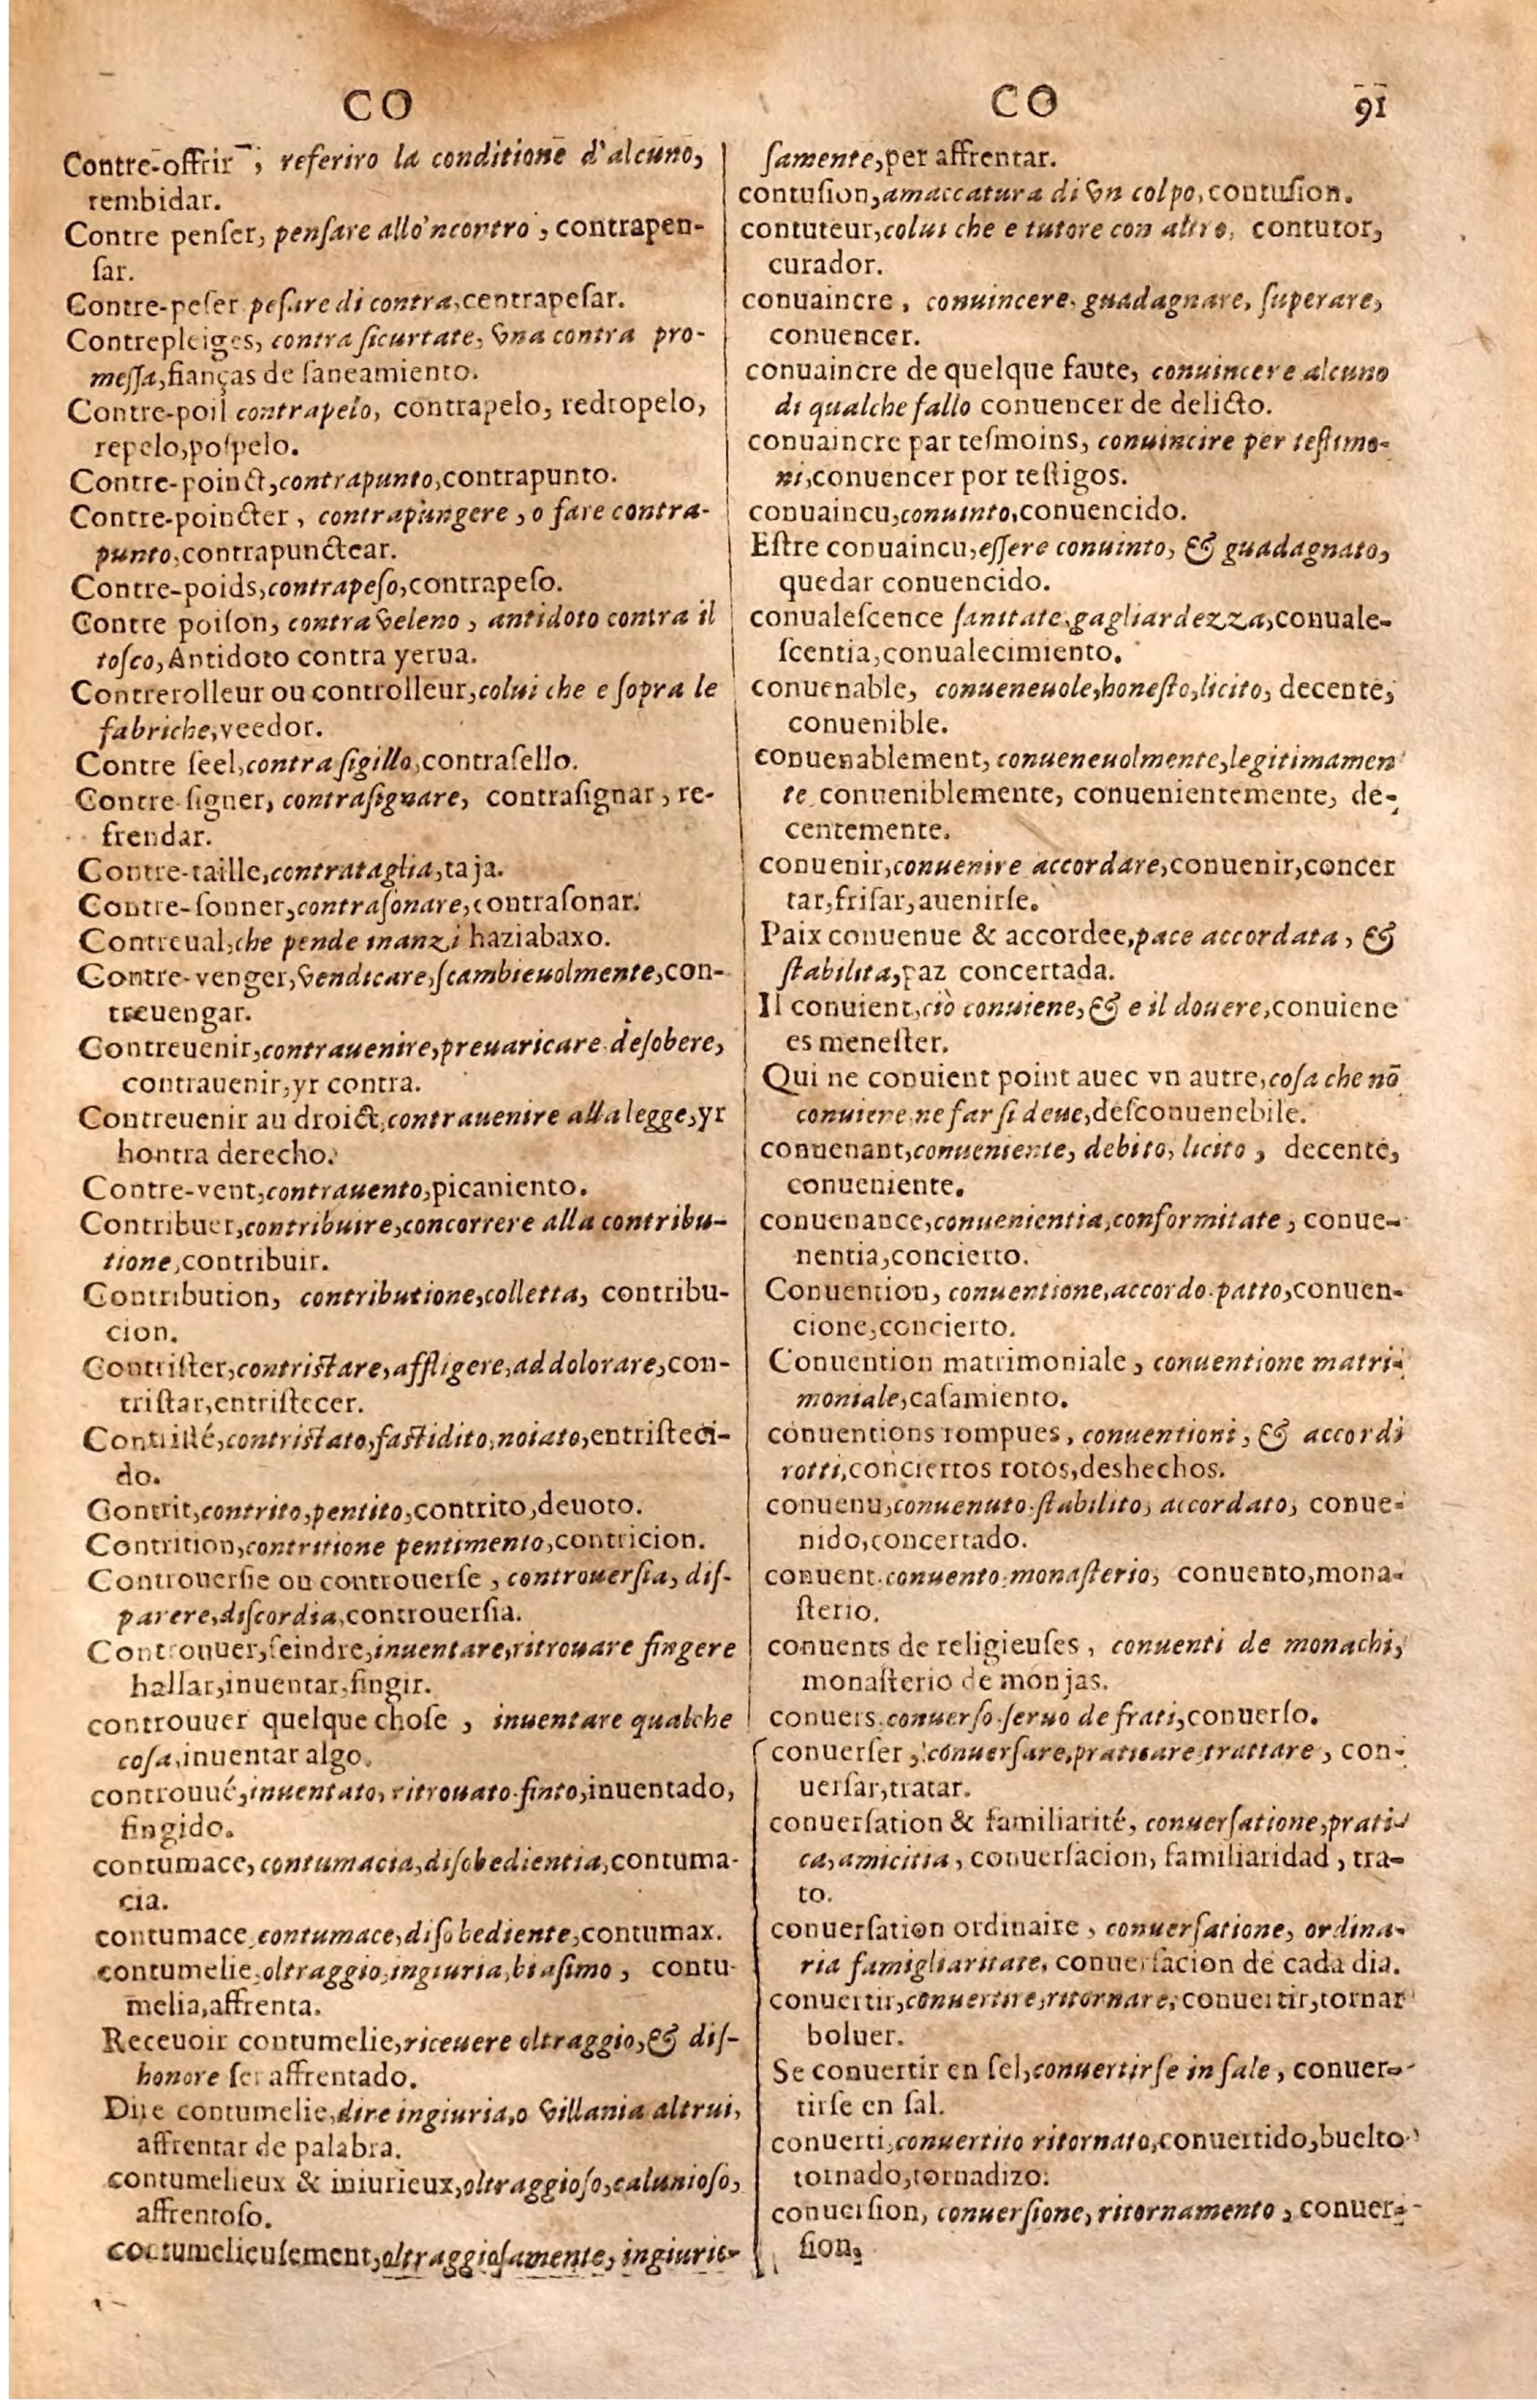 CO
Contre-offrir, referiro la conditione d'alcuno,
rembidar.
Contre penser, pensare allo'ncontro, contrapen-
sar.
Contre-peser pesare di contra, centrapesar.
Contrepleiges, contra sicurtate, vna contra pro-
messa, fianças de saneamiento.
Contre-poil contrapelo, contrapelo, redropelo,
repelo, pospelo.
Contre-poinct, contrapunto, contrapunto.
Contre-poincter, contrapùngere, o fare contra-
punto, contrapunctear.
Contre-poids, contrapeso, contrapeso.
Contre poison, contra veleno, antidoto contra il
tosco, Antidoto contra yerua.
Contrerolleur ou controlleur, colui che e sopra le
fabriche, veedor.
Contre seel, contra sigillo, contrasello.
Contre signer, contrasignare, contrasignar, re-
frendar.
Contre-taille, contrataglia, taja.
Contre-sonner, contrasonare, contrasonar.
Contreual, che pende inanzi haziabaxo.
Contre-venger, vendicare, scambieuolmente, con-
treuengar.
Contreuenir, contrauenire, preuaricare desobere,
contrauenir, yr contra.
Contreuenir au droict, contrauenire alla legge, yr
hontra derecho.
Contre-vent, contrauento, picaniento.
Contribuer, contribuire, concorrere alla contribu-
tione, contribuir.
Contribution, contributione, colletta, contribu-
cion.
Contrister, contristare, affligere, addolorare, con-
tristar, entristecer.
Contristé, contristato, fastidito, noiato, entristeci-
do.
Contrit, contrito, pentito, contrito, deuoto.
Contrition, contritione pentimento, contricion.
Controuersie ou controuerse, controuersia, dis-
parere, discordia, controuersia.
Controuuer, feindre, inuentare, ritrouare fingere
hallar, inuentar, fingir.
controuuer quelque chose, inuentare qualche
cosa, inuentar algo.
controuué, inuentato, ritrouato finto, inuentado,
fingido.
contumace, contumacia, disobedientia, contuma-
cia.
contumace, contumace, disobediente, contumax.
contumelie, oltraggio, ingiuria, biasimo, contu-
melia, affrenta.
Receuoir contumelie, riceuere oltraggio, & dis-
honore ser affrentado.
Dire contumelie, dire ingiuria, o villania altrui,
affrentar de palabra.
contumelieux & iniurieux, oltraggioso, calunioso,
affrentoso.
contumelieusement, oltraggiosamente, ingiurio-
CO 91
samente, per affrentar.
contusion, amaccatura di vn colpo, contusion.
contuteur, colui che e tutore con altro, contutor,
curador.
conuaincre, conuincere, guadagnare, superare,
conuencer.
conuaincre de quelque faute, conuincere alcuno
di qualche fallo conuencer de delicto.
conuaincre par tesmoins, conuincire per testimo-
ni, conuencer por testigos.
conuaincu, conuinto, conuencido.
Estre conuaincu, essere conuinto, & guadagnato,
quedar conuencido.
conualescence sanitate, gagliardezza, conuale-
scentia, conualecimiento.
conuenable, conueneuole, honesto, licito, decente,
conuenible.
conuenablement, conueneuolmente, legitimamen
te conueniblemente, conuenientemente, de-
centemente.
conuenir, conuenire accordare, conuenir, concer
tar, frisar, auenirse.
Paix conuenue & accordee, pace accordata, &
stabilita, paz concertada.
Il conuient, ciò conuiene, & e il douere, conuiene
es menester.
Qui ne conuient point auec vn autre, cosa che nō
conuiene, ne far si deue, desconuenebile.
conuenant, conueniente, debito, licito, decente,
conueniente.
conuenance, conuenientia, conformitate, conue-
nentia, concierto.
Conuention, conuentione, accordo patto, conuen-
cione, concierto.
Conuention matrimoniale, conuentione matri-
moniale, casamiento.
conuentions rompues, conuentioni, & accordi
rotti, conciertos rotos, deshechos.
conuenu, conuenuto stabilito, accordato, conue-
nido, concertado.
conuent conuento monasterio, conuento, mona-
sterio.
conuents de religieuses, conuenti de monachi,
monasterio de monjas.
conuers conuerso seruo de frati, conuerso.
conuerser, conuersare, praticare trattare, con-
uersar, tratar.
conuersation & familiarité, conuersatione, prati-
ca, amicitia, conuersacion, familiaridad, tra-
to.
conuersation ordinaire, conuersatione, ordina-
ria famigliaritate, conuersacion de cada dia.
conuertir, conuertire, ritornare, conuertir, tornar
boluer.
Se conuertir en sel, conuertirse in sale, conuer-
tirse en sal.
conuerti, conuertito ritornato, conuertido, buelto
tornado, tornadizo.
conuersion, conuersione, ritornamento, conuer-
sion,